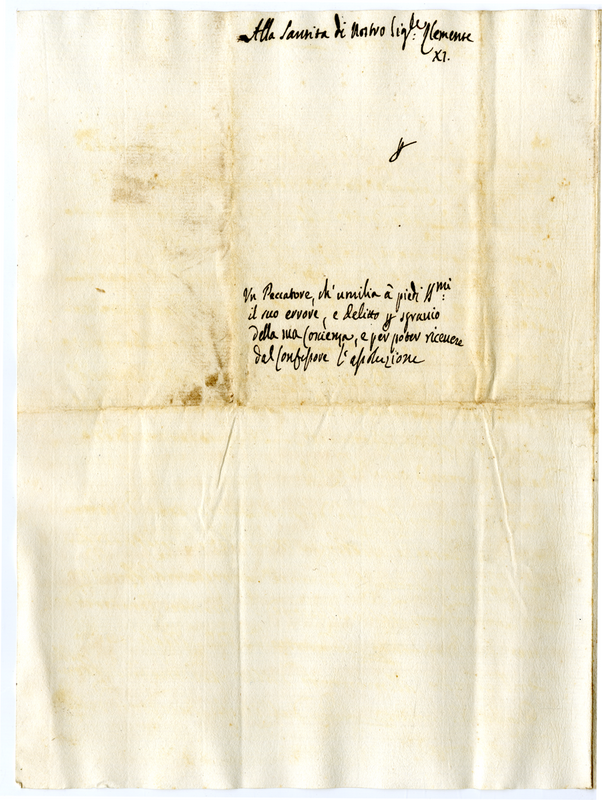 Alla Santita di Nostro Sig.re Clemente
XI.
Un Peccatore, ch'umilia à piedi SS.mi
il suo errore, e delitto sgravio
della sua Coscienza, e per poter ricevere
dal Confessore l'assoluzione